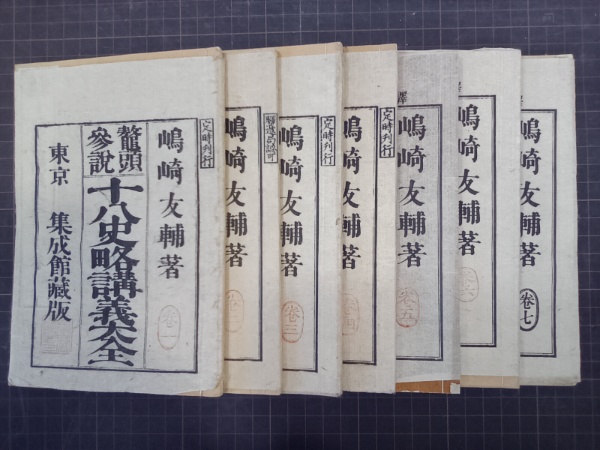 定時刊行
嶋崎友輔著
卷一
鼇頭
參説
十八史略講義大全
東京 集成館藏版
嶋崎友輔著
定時刊行
嶋崎友輔著
卷三
定時刊行
嶋崎友輔著
卷四
定時刊行
嶋崎友輔著
卷五
嶋崎友輔著
卷六
嶋崎友輔著
卷七